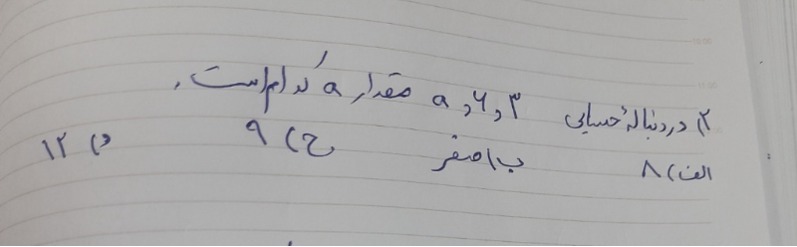 ۲) در دنبالهٔ حسابی ۳ و ۶ و a مقدار a کدام است.
الف) ۸ ب) صفر ج) ۹ د) ۱۲